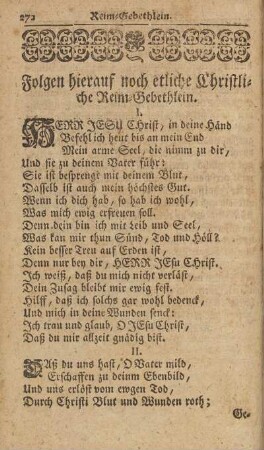 272 Reim-Gebethlein.
Folgen hierauf noch etliche Christli-
che Reim-Gebethlein.
I.
HERR JESU Christ, in deine Händ
Befehl ich heut bis an mein End
Mein arme Seel, die nimm zu dir,
Und sie zu deinem Vater führ:
Sie ist besprengt mit deinem Blut,
Dasselb ist auch mein höchstes Gut.
Wenn ich dich hab, so hab ich wohl,
Was mich ewig erfreuen soll.
Denn dein bin ich mit Leib und Seel,
Was kan mir thun Sünd, Tod und Höll?
Kein besser Treu auf Erden ist,
Denn nur bey dir, HERR JEsu CHrist.
Ich weiß, daß du mich nicht verläst,
Dein Zusag bleibt mir ewig fest.
Hilff, daß ich solchs gar wohl bedenck,
Und mich in deine Wunden senck:
Ich trau und glaub, O JEsu Christ,
Daß du mir allzeit gnädig bist.
II.
DAß du uns hast, O Vater mild,
Erschaffen zu deinm Ebenbild,
Und uns erlöst vom ewgen Tod,
Durch Christi Blut und Wunden roth;
Ge-